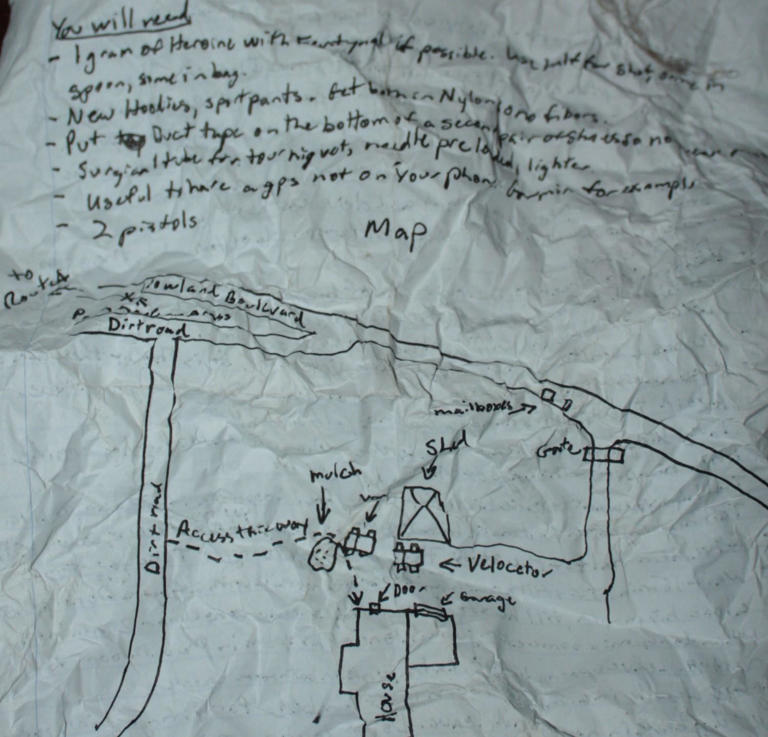 You will need
- 1 gram of Heroine with if possible. Use half for shot, some in
spoon, some in bag.
- New Hoodies, sport pants. Get born in Nylon, no fibers.
- Put Duct tape on the bottom of a second pair of shoes so no
- Surgical tube for tourniquet, needle preloaded, lighter
- Useful to have a gps not on your phone Garmin for example
- 2 pistols
Map
to
Route
Rowland Boulvard
Dirtroad
mailboxes
Gate
Shed
mulch
Access this way
Dirt road
Velocetor
Door
Garage
House